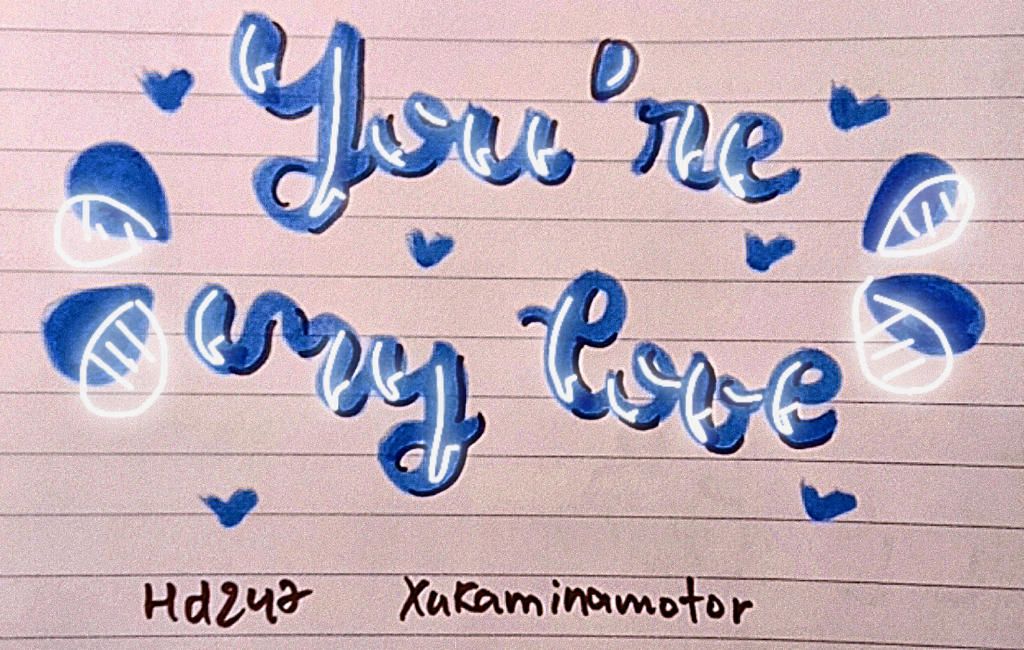 You're
my love
Hd247 Xukaminamotor